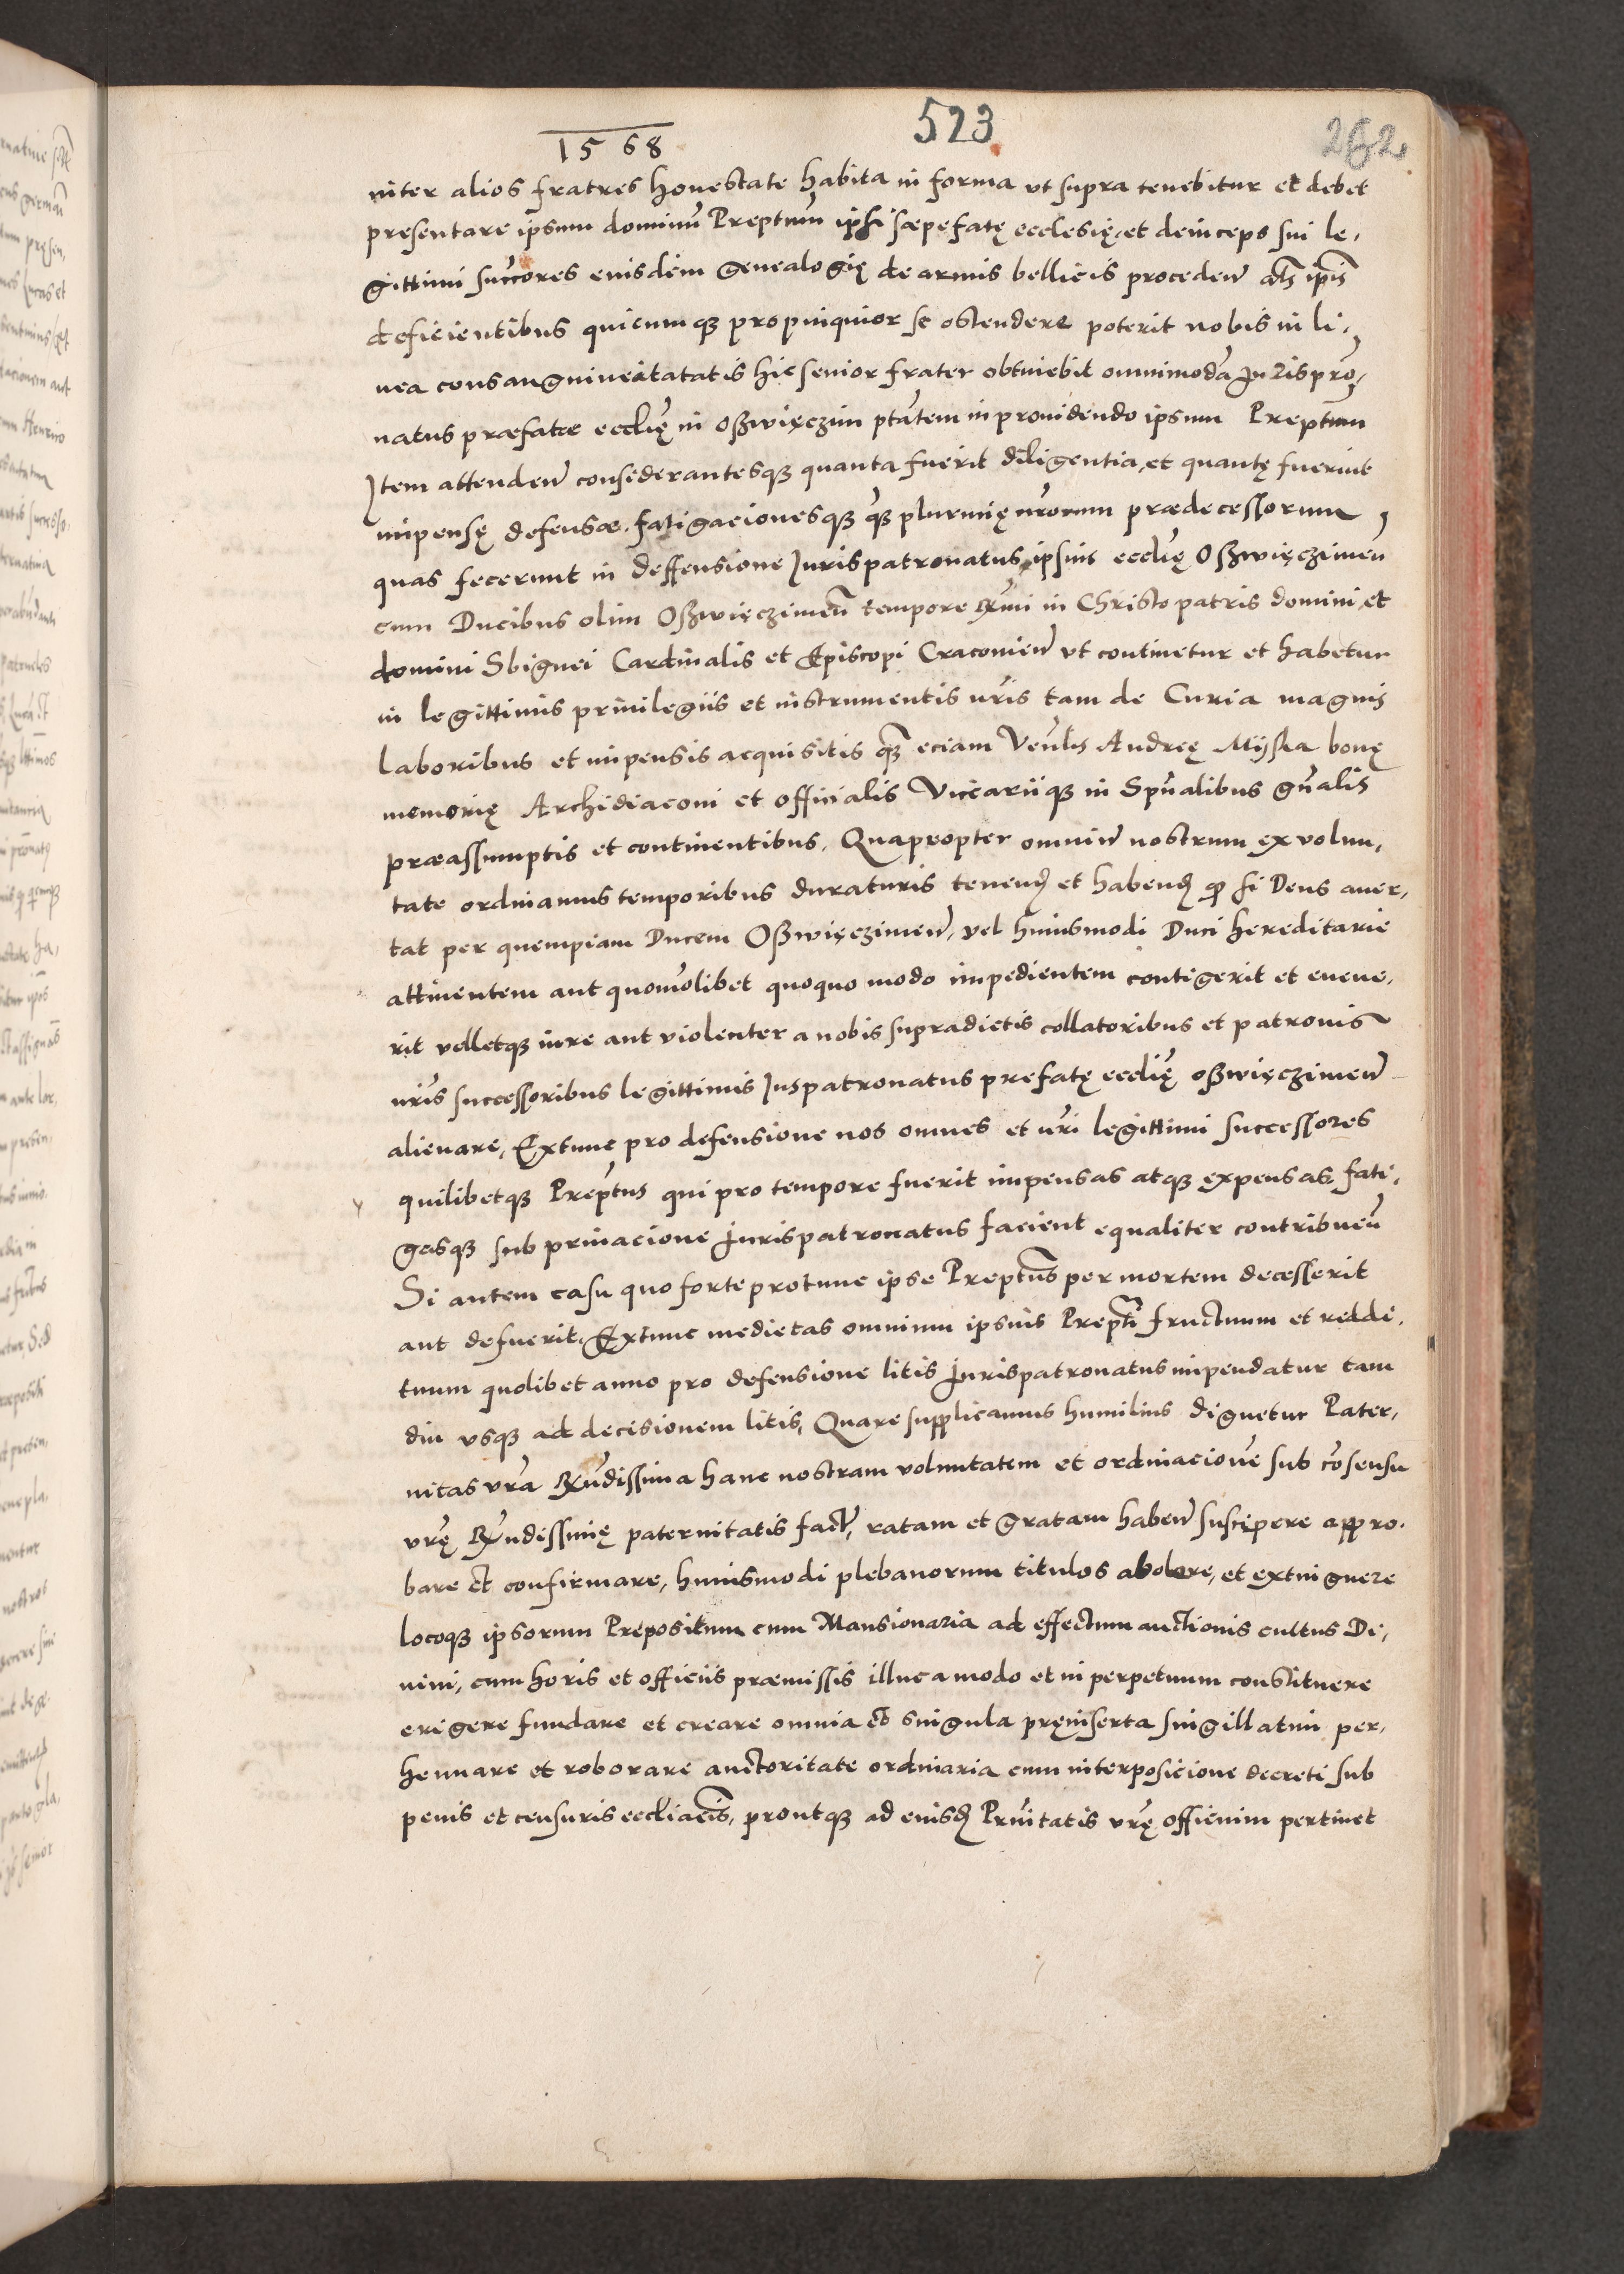 523
262
1568
inter alios fratres honestate habita in forma ut supra tenebitur et debet
presentare ipsum dominũ Preptum ipsi sæpefatę ecclesię, et deinceps sui le,
gittimi succores eiusdem Genealogię de armis bellicis proceden̄ als ipis
deficientibus quicumqꝫ propinquior se ostendere poterit nobis in li,
nea consanguineitatatis hic senior frater obtinebit omnimodã Juris prõ,
natus præfatæ ecclię in Oßwięczim ptãtem in providendo ipsum Preptum
Item attenden̄ considerantesqꝫ quanta fuerit diligentia, et quantę fuerint
impensę defensæ. fatigacionesqꝫ qꝫ plurimię nrorum prædecessorum,
quas fecerunt in deffensione Jurispatronatus ipsius ecclię Oßwięczimen̄
cum Ducibus olim Oßwięczimen̄ tempore Rmi in Christo patris domini, et
domini Sbignei Cardinalis et Episcopi Cracovien̄ ut continetur et habetur
in legittimis privilegiis et instrumentis nris tam de Curia magnis
laboribus et impensis acquisitis qꝫ eciam Venlis Andreę Myßka bonę
memorię Archidiaconi et officialis Viccariiqꝫ in Spũalibus gñalis
præassumptis et continentibus. Quapropter omnium nostrum ex volun,
tate ordinamus temporibus duraturis tenend et habend qꝫ si Deus aver,
tat per quempiam Ducem Oßwięczimen̄, vel huiusmodi Duci hereditarie
attinentem aut quomõlibet quoquo modo impedientem contigerit et evene,
rit velletqꝫ iure aut violenter a nobis supradictis collatoribus et patronis
nris successoribus legittimis Juspatronatus prefatę ecclię Oßwięczimen̄
alienare, Extunc pro defensione nos omnes et nri legittimi successores
quilibetqꝫ Preptus qui pro tempore fuerit impensas atqꝫ expensas, fati,
gasqꝫ sub privacione Jurispatronatus facient equaliter contribuen̄
Si autem casu quo forte protunc ipse Preptus per mortem decesserit
aut defuerit. Extunc medietas omnium ipsius Prepti fructuum et reddi,
tuum quolibet anno pro defensione litis Jurispatronatus impendatur tam
diu usqꝫ ad decisionem litis, Quare supplicamus humilius dignetur Pater,
nitas vra Rũdissima hanc nostram voluntatem et ordinacionẽ sub cõsensu
vrę Rũdissimię paternitatis fact, ratam et gratam haben̄ suscipere appro,
bare et confirmare, huiusmodi plebanorum titulos abolere, et extinguere
locoqꝫ ipsorum Prepositum cum Mansionaria ad effectum auctionis cultus Di,
vini, cum horis et officiis præmissis illuc amodo et in perpetuum constituere
erigere fundare et creare omnia et singula pręinserta singillatim per,
hennare et roborare auctoritate ordinaria cum interposicione decreti sub
penis et censuris eccliacis, proutqꝫ ad eiusd Prnitatis vrę officium pertinet